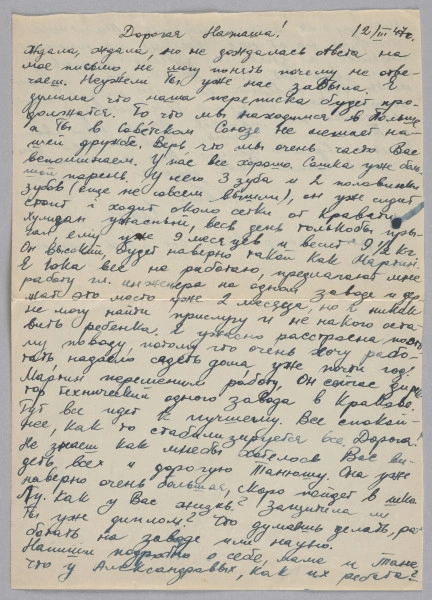 Дорогая Наташа! 12/III 47г.
Ждала, ждала, но не дождалась ответа на
мое письмо не могу понять почему не отве-
чаеш. Неужели ты уже нас забыла. Я
думала что наша переписка будет про-
должатся. То что мы находимся в Польше
а ты в Советском Союзе не мешает на-
шей дружбе. Верь что мы очень часто Вас
вспоминаем. У нас все хорошо. Сашка уже боль-
шой парень. У него 3 зуба и 2 половинки
зубов (еще не совсем вышли), он уже сидит
стоит и ходит около сетки от кровати.
Хулиган ужасный, весь день только бы пры-
гал ему уже 9 месяцев и весит 9 1/2 кг.
Он высокий, будет наверно такой как Мартин.
Я пока все не работаю, предлагают мне
работу гл. инженера на одном заводе и дер-
жат это место уже 2 месяца, но я никак
не могу найти прислугу и не на кого оста-
вить ребенка. Я ужасно расстроена по это-
му поводу, потому что очень хочу рабо-
тать надоело сидеть дома уже почти год.
Мартин переменил работу, он сейчас дирек-
тор технический одного завода в Кракове.
Тут все идет к лучшему. Все спокой-
нее, как то стабилизируется все. Дорога!
Не знаеш как мне бы хотелось Вас ви-
деть, всех и дорогую Танюшу. Она уже
наверно очень большая, скоро пойдет в шко-
лу. Как у Вас жизнь? Защитила ли
ты уже диплом? Что думаешь делать, ра-
ботать на заводе или научно.
Напиши подробно о себе, маме и Тане
что у Александровых, как их ребята?